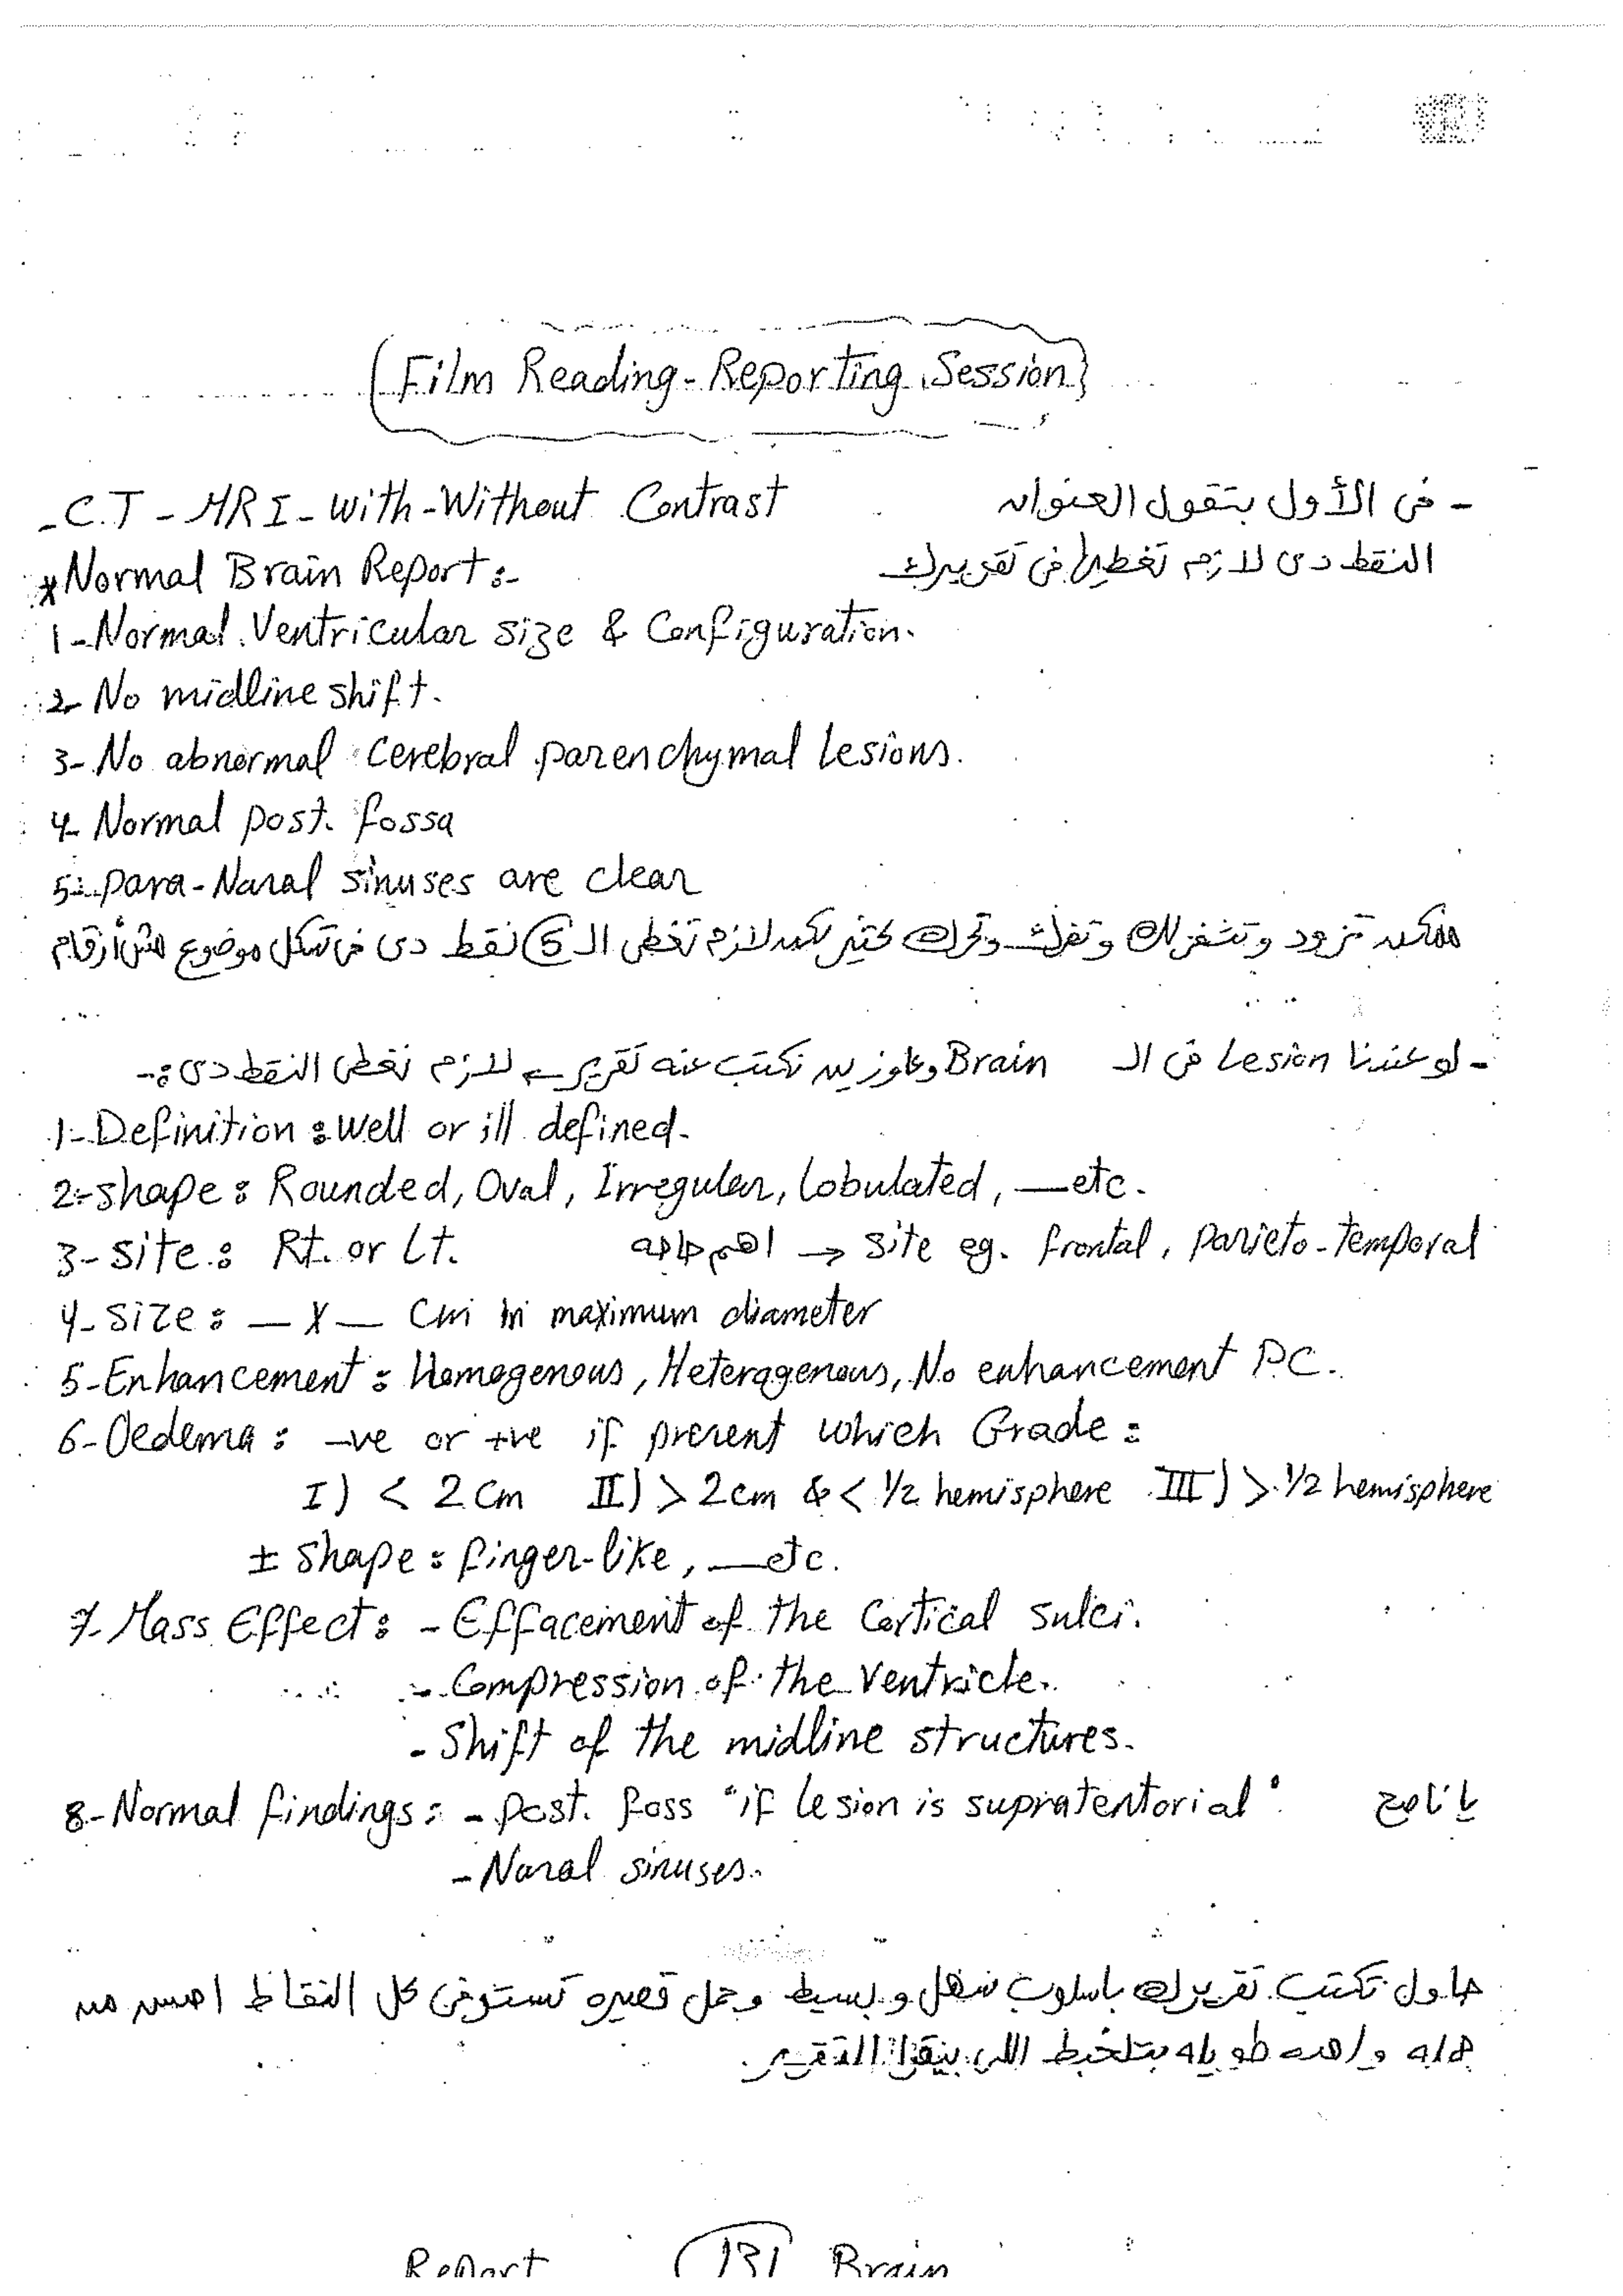 Film Reading-Reporting Session
-C.T-MRI-with-Without Contrast - فى الأول بتقول العنوان
*Normal Brain Report:- النقط دى لازم تغطيها فى تقريرك
1-Normal Ventricular size & Configuration.
2-No midline shift.
3-No abnormal Cerebral parenchymal lesions.
4-Normal post. fossa
5-para-Nasal sinuses are clear
ممكن تزود لازم تغطى الـ 5 نقط دى فى شكل موضوع مش أرقام
- لو عندنا Lesion فى الـ Brain وعاوزين نكتب عنه تقرير لازم نغطى النقط دى:-
1-Definition: well or ill defined.
2-shape: Rounded, Oval, Irregular, lobulated, —etc.
3-site: Rt. or Lt. اهم حاجه → site eg. frontal, parieto-temporal
4-size: — X — Cm in maximum diameter
5-Enhancement: Homogenous, Heterogenous, No enhancement P.C.
6-Oedema: -ve or +ve if present which Grade:
I) < 2 cm II) > 2cm & < 1/2 hemisphere III) > 1/2 hemisphere
± shape: finger-like, —etc.
7-Mass Effect: - Effacement of the Cortical sulci.
- Compression of the Ventricle.
- Shift of the midline structures.
8-Normal findings: - post. foss "if lesion is supratentorial"
- Nasal sinuses.
حاول تكتب تقريرك باسلوب سهل وبسيط وجمل قصيره تستوفى كل النقاط احسن من
جمله واحده طويله بتلخبط اللى بيقرا التقرير.
Report 131 Brain